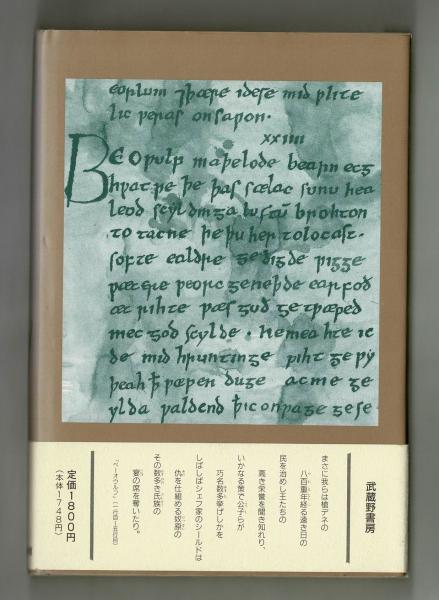 eorlum ⁊ þære idese mid ƿlite
lic ƿeras onsaƿon.
xxiiii
BEOǷULF maþelode bearn ecg
hƿæt ƿe þe þas sælac sunu hea
leod scyldinga lustū brohton
to tacne þe þu her tolocast.
softe ealdre gedigde ƿigge
ƿætere ƿeorc geneþde earfoð
æt rihte ƿæs guð getƿæfed
mec god scylde. ne meahte ic
de mid hruntinge ƿiht geƿy
þeah ꝥ ƿæpen duge ac me ge
ylda ƿaldend ꝥ ic on ƿage gese
武蔵野書房
まさに我らは槍デネの
八百重年経る遠き日の
民を治めし王たちの
高き栄誉を聞き知れり、
いかなる策で公子らが
巧名数多挙げしかを
しばしばシェフ家のシールドは
仇を仕組める奴原の
その数多き氏族の
宴の席を奪いたり。
『ベーオウルフ』(一行目―五行目)
定価1800円
(本体1748円)